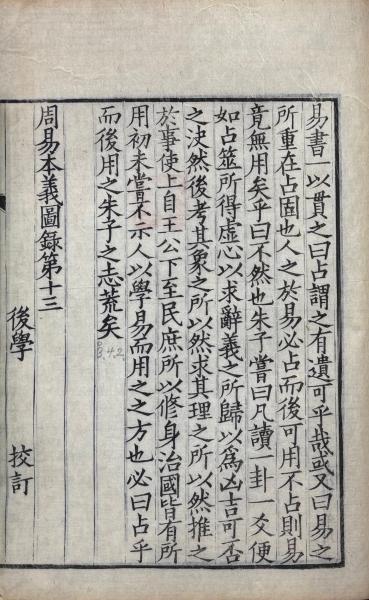 易書一以貫之曰占謂之有遺可乎哉或又曰易之
所重在占固也人之於易必占而後可用不占則易
竟無用矣乎曰不然也朱子嘗曰凡讀一卦一爻便
如占筮所得虛心以求辭義之所歸以爲凶吉可否
之决然後考其象之所以然求其理之所以然推之
於事使上自王公下至民庶所以修身治國皆有所
用初未嘗不示人以學易而用之之方也必曰占乎
而後用之朱子之志荒矣
周易本義圖録第十三
後學 挍訂